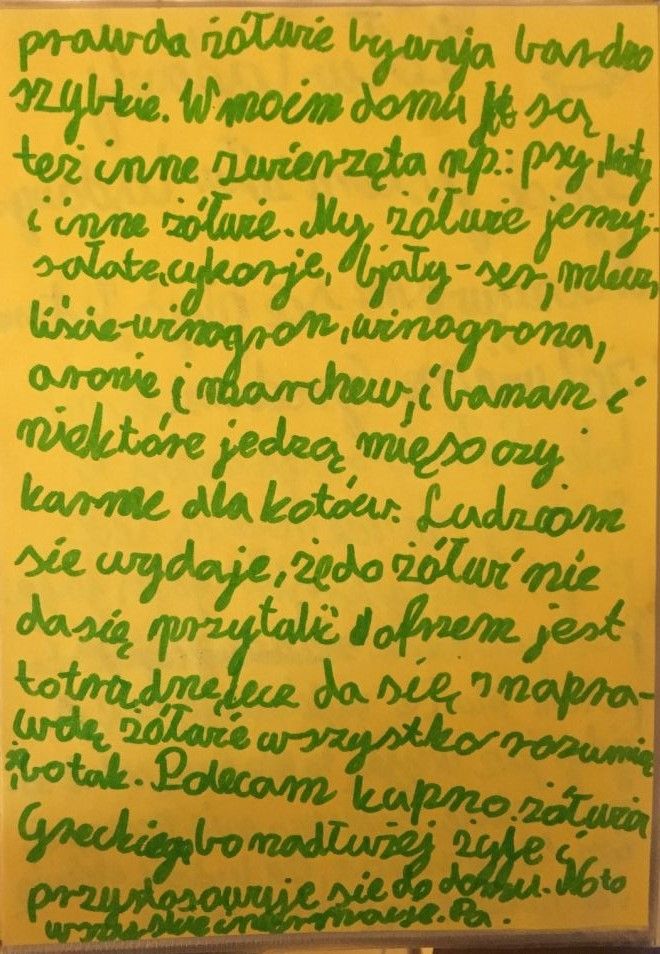 prawda żółwie bywają bardzo
szybkie. W moim domu są
też inne zwierzęta np.: psy, koty
i inne żółwie. My żółwie jemy:
sałate, cykorje, bjały-ser, mlecz,
liście-winogron, winogrona,
aronie i marchew, i banan i
niektóre jedzą mięso czy
karme dla kotów. Ludziom
sie wydaje, że do żółwi nie
da się przytulić ofszem jest
to trudne, lecz da się, napra-
wdę żółwie wszystko rozumią
bo tak. Polecam kupno żółwia
Greckiego bo nadłużej żyje i
przystosowuje sie do domu. No to
wszystkie informacje. Pa.